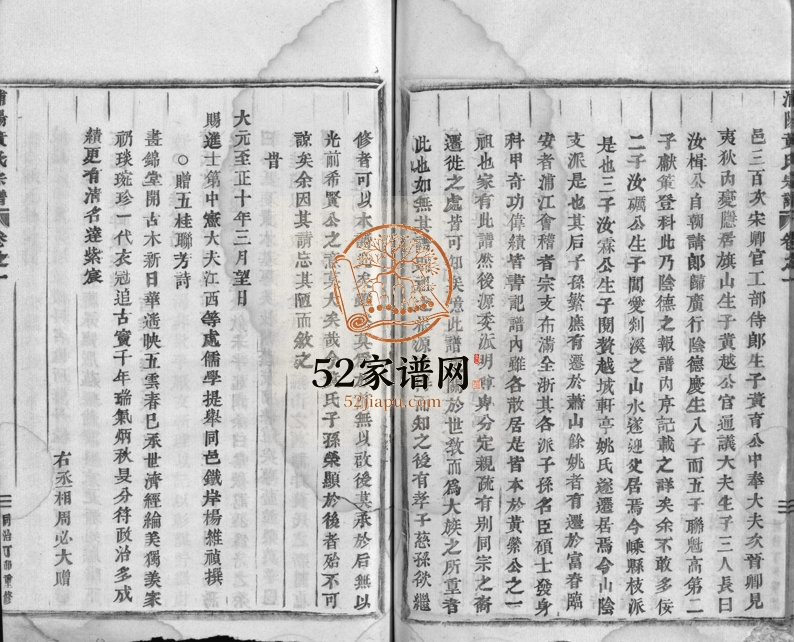 邑三百次宋卿官工部侍郎生子黃育公中奉大夫次晉卿見
夷狄內憂隱居旗山生子黃越公官通議大夫生子三人長曰
汝楫公自朝請郎歸廣行陰德慶生八子而五子聯魁高第二
子獻策登科此乃陰德之報譜內序記載之詳矣余不敢多佞
二子汝礪公生子閣愛剡溪之山水遂迎父居焉今嵊縣枝派
是也三子汝霖公生子開贅越城軒亭姚氏遂遷居焉今山陰
支派是也其后子孫繁庶有遷於蕭山餘姚者有遷於富春臨
安者浦江會稽者宗支布滿全浙其各派子孫名臣碩士發身
科甲奇功偉績皆書記譜內雖各散居是皆本於黃縈公之一
祖也家有此譜然後源委派明尊卑分定親疏有別同宗之裔
遷徙之處皆可知矣噫此譜 於世教而為大族之所重者
此也如無其譜 而知之後有孝子慈孫欲繼
修者可以本 矣 其 於前無以啟後其承於后無以
光前希賢公之 其大矣哉今 氏子孫榮顯於後者殆不可
諒矣余因其請忘其陋而敘之
旹
大元至正十年三月望日
賜進士第中憲大夫江西等處儒學提舉同邑鐵岸楊維禎撰
○贈五桂聯芳詩
晝錦堂開古木新日華遙映五雲春已承世濟經綸美獨羨家
礽琰琬珍一代衣冠追古竇千年瑞氣炳秋旻分符政治多成
績更有清名達紫宸
右丞相周必大贈
浦陽黃氏宗譜
卷之一
同治丁卯重修
浦陽黃氏宗譜
卷之一
52家谱网
52jiapu.com